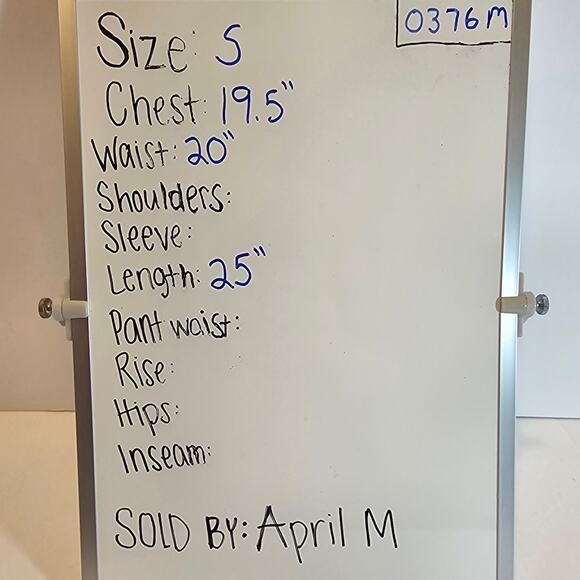 0376M
Size: S
Chest: 19.5"
Waist: 20"
Shoulders:
Sleeve:
Length: 25"
Pant waist:
Rise:
Hips:
Inseam:
SOLD BY: April M